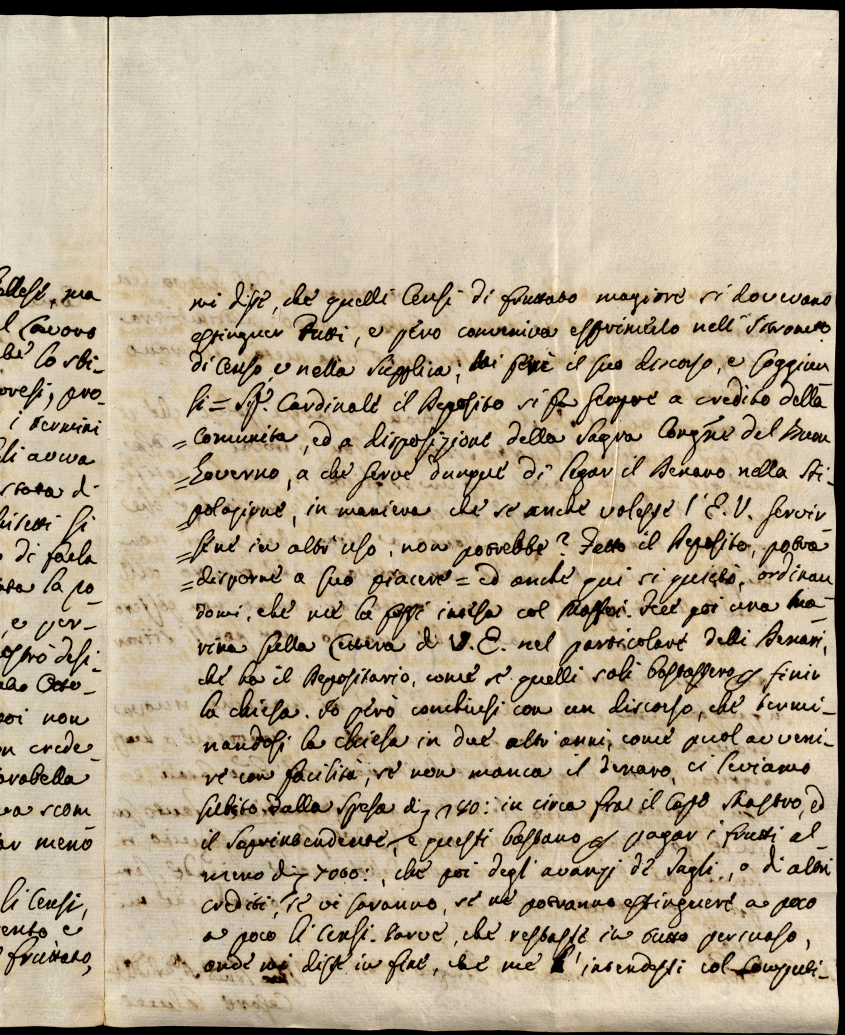 allesi, ma
l Lavoro
he lo sti-
ovesi, pro-
i termini
li avea
stata di
si
di farla
ata la po-
, e per-
ostrò desi-
Otto-
poi non
n crede-
arabella
va scom
ar meno
li Censi,
ento e
fruttato,
mi disse, che quelli Censi di fruttato magiore si dovevano
estinguer Tutti, e però conveniva esprimerlo nell' Istromto
di Censo, e nella Supplica; finì il suo discorso, e soggiun
si = Sigr. Cardinale il Deposito si fa sempre a credito della
= Comunità, ed a disposizione della Sagra Congñe del Buon
= Governo, a che serve dunque di legar il Denaro nella Sti-
= polazione, in maniera che se anche volesse l'E.V. servir-
= sene in altr'uso, non potrebbe? Fatto il Deposito, potrà
= disporne a suo piacere = ed anche qui si quietò, ordinan
domi, che me la passi intesa col Maffei. Fece poi una
sulla Lettera di V.E. nel particolare delli Denari,
che ha il Depositario, come se quelli soli bastassero p finir
la chiesa. Io però conchiusi con un discorso, che termi-
nandosi la Chiesa in due altri anni, come puol avveni-
re con facilità, se non manca il denaro, ci leviamo
subito dalla spesa di 780: in circa fra il Capo Mastro, ed
il Soprintendente, e questi bastano p pagar i frutti al-
meno di 7000:, che poi degl'avanzi de Sagli, o di altri
crediti, se vi saranno, se ne potranno estinguere a poco
a poco li Censi. Parve, che restasse in tutto persuaso,
onde mi disse in fine, che me l'intendessi col Computi-